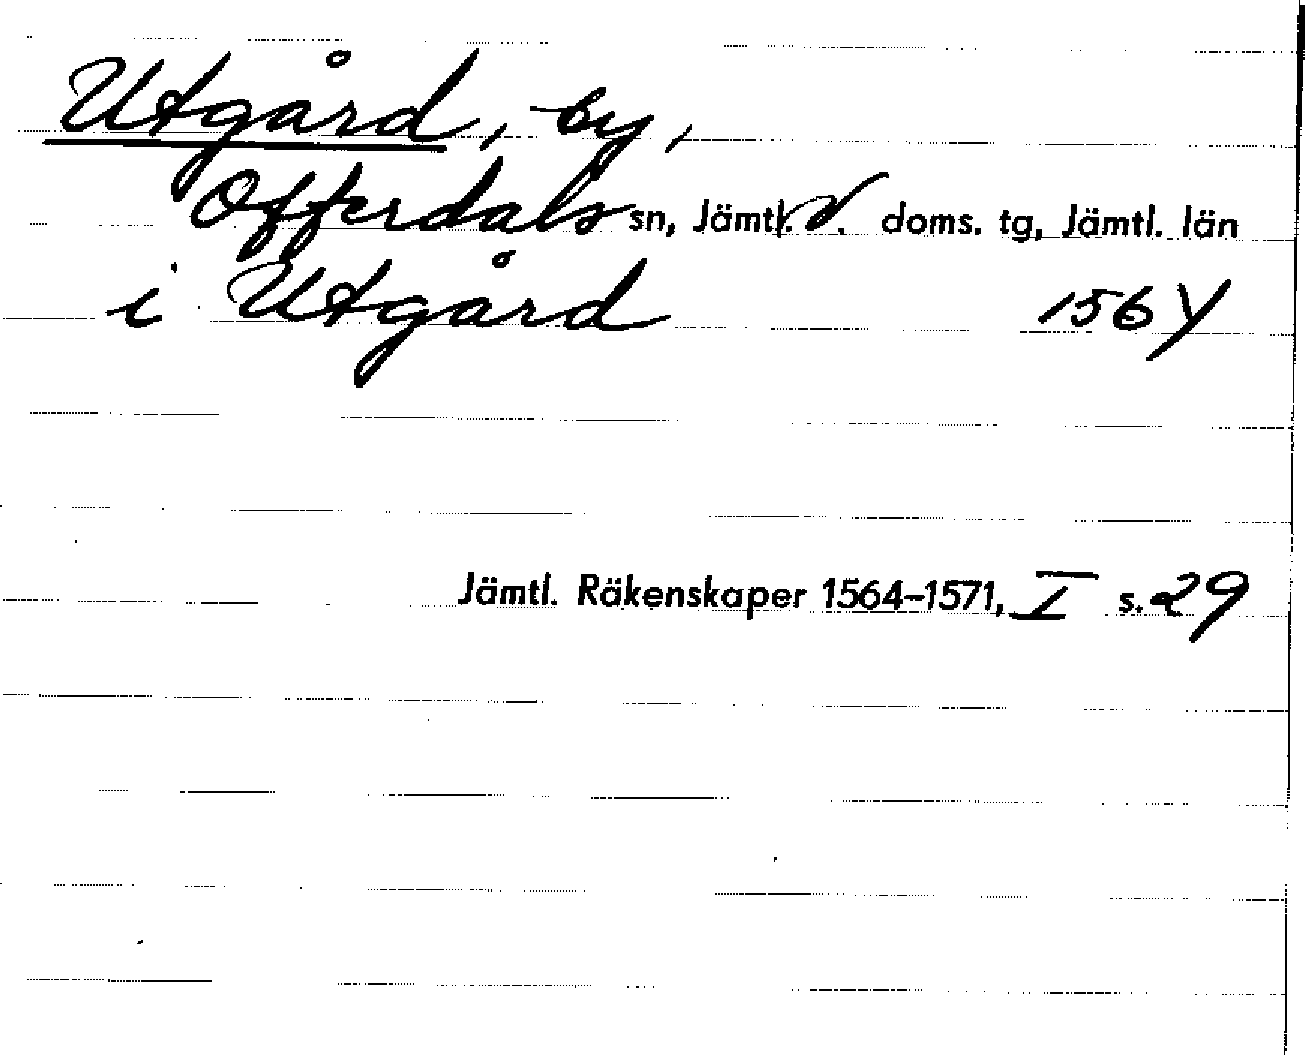 Utgård, by,
Offerdals sn, Jämtl. v. doms. tg, Jämtl. län
i Utgård 1564
Jämtl. Räkenskaper 1564-1571, I s. 29